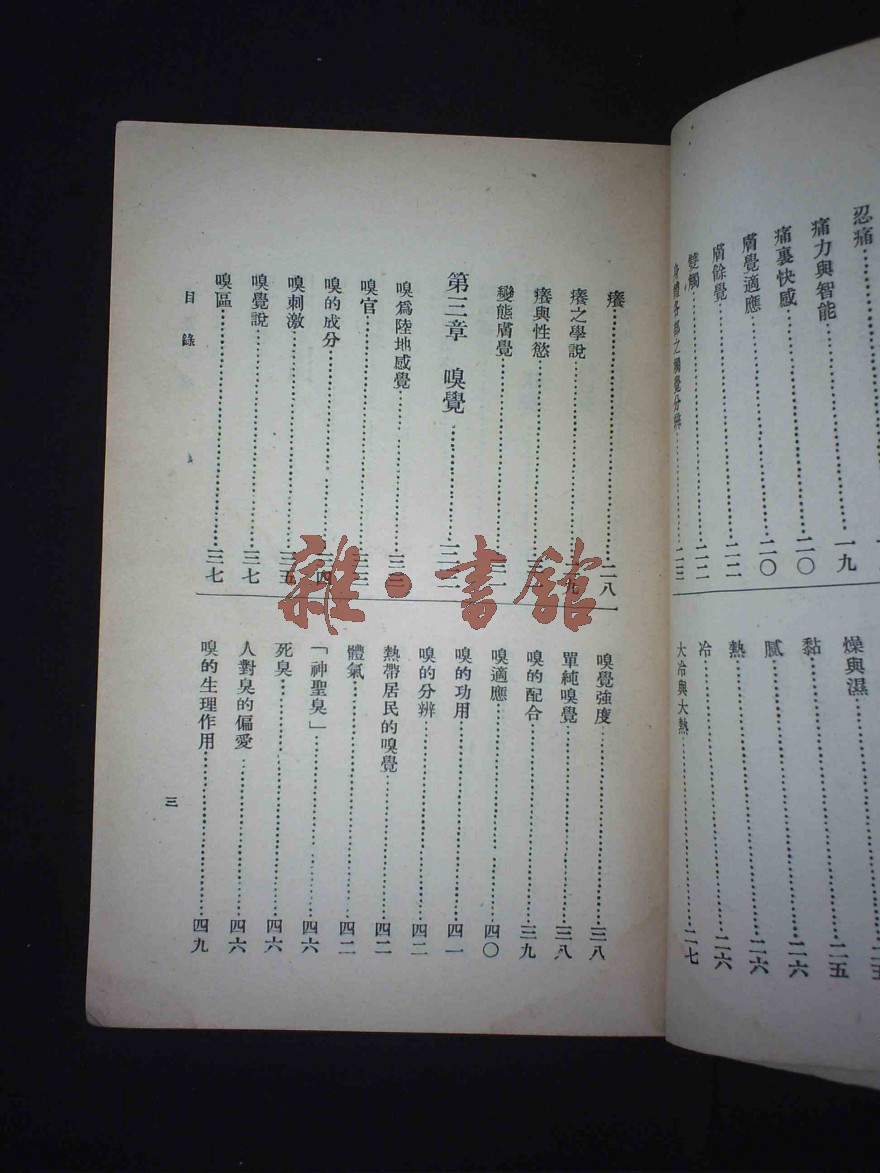 忍痛
痛力與智能 一九
痛裏快感 二〇
膚覺適應 二〇
膚餘覺 二二
雙觸 二二
身體各部之觸覺分辨 二三
燥與濕 二五
黏 二五
膩 二六
熱 二六
冷 二六
大冷與大熱 二七
癢 二八
癢之學說 二九
癢與性慾
變態膚覺 三一
第三章 嗅覺 三二
嗅爲陸地感覺 三三
嗅官 三三
嗅的成分 三四
嗅刺激 三五
嗅覺說 三七
嗅區 三七
嗅覺強度 三八
單純嗅覺 三八
嗅的配合 三九
嗅適應 四〇
嗅的功用 四一
嗅的分辨 四二
熱帶居民的嗅覺 四二
體氣 四二
「神聖臭」 四六
死臭 四六
人對臭的偏愛 四六
嗅的生理作用 四九
目錄
三
雜·書館